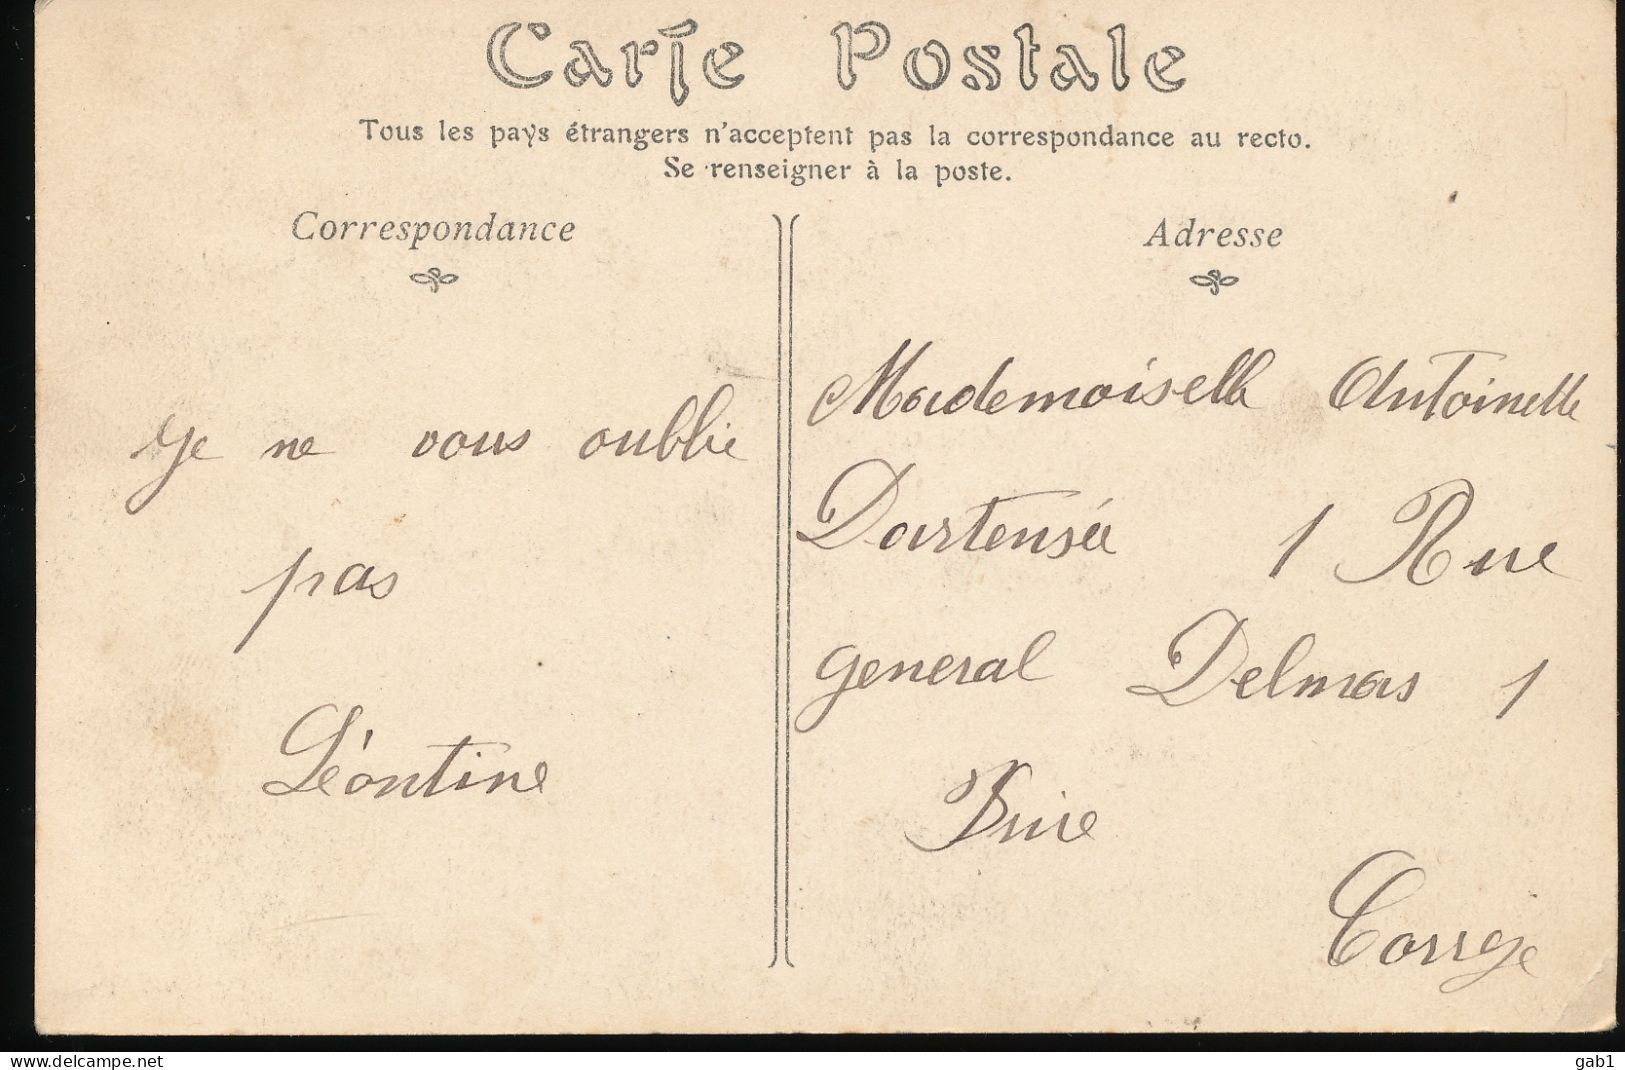 Carte Postale
Tous les pays étrangers n'acceptent pas la correspondance au recto.
Se renseigner à la poste.
Correspondance
je ne vous oublie
pas
Léontine
Adresse
Mademoiselle Antoinette
1 Rue
general Delmas 1
Brive
Corrèze
www.delcampe.net
gab1